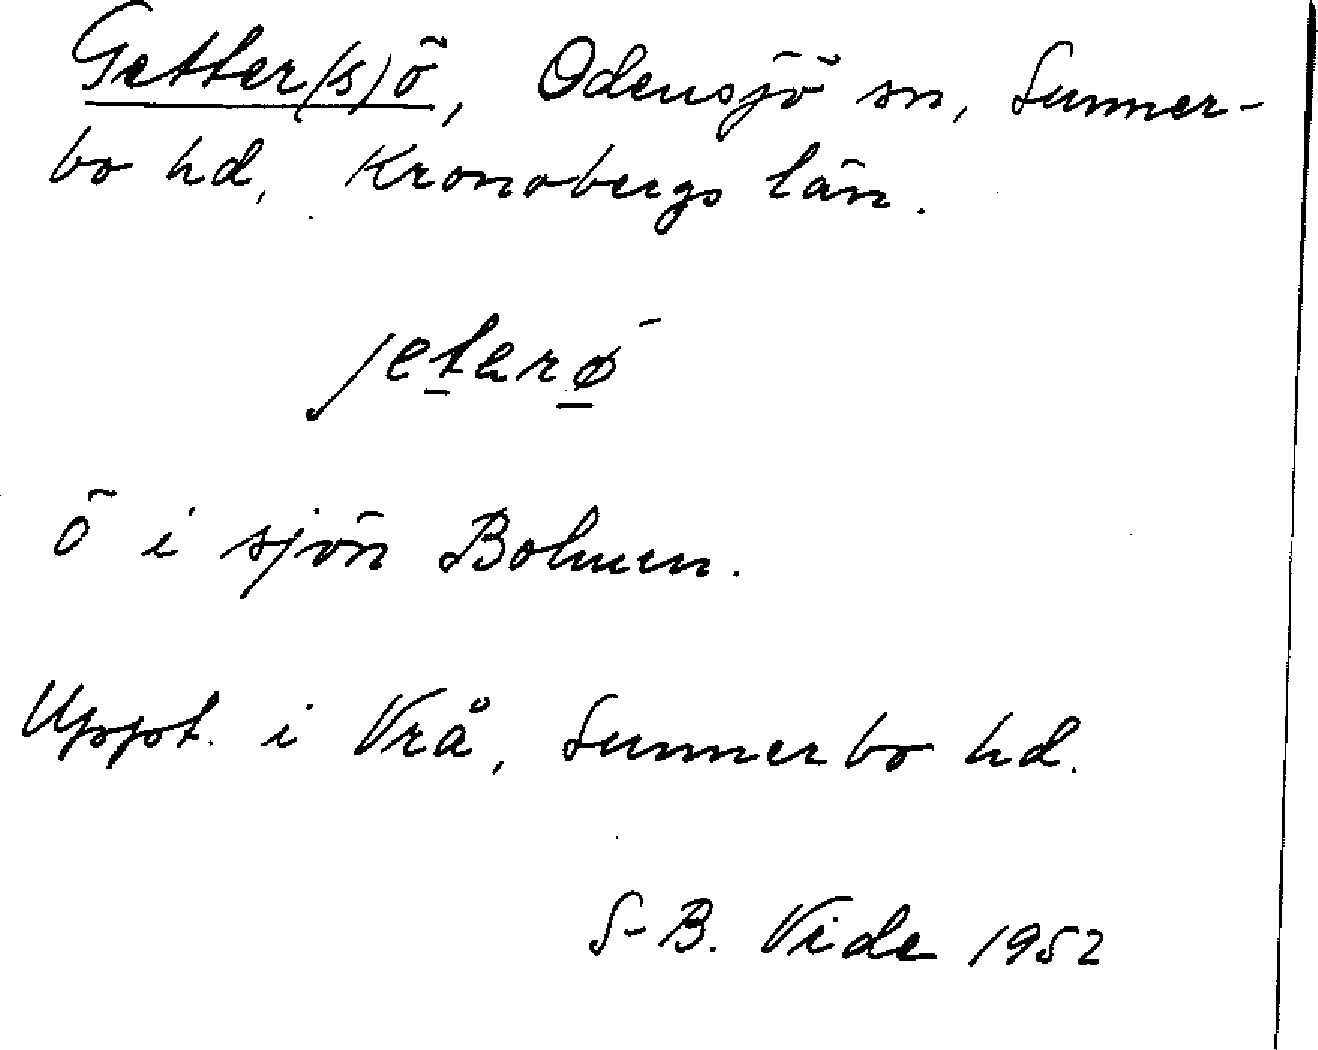 Getter(s)ö, Odensjö sn, Sunner-
bo hd, Kronobergs län.
jet̲erǿ̲
Ö i sjön Bolmen.
Uppt. i Vrå, Sunnerbo hd.
S-B. Vide 1952